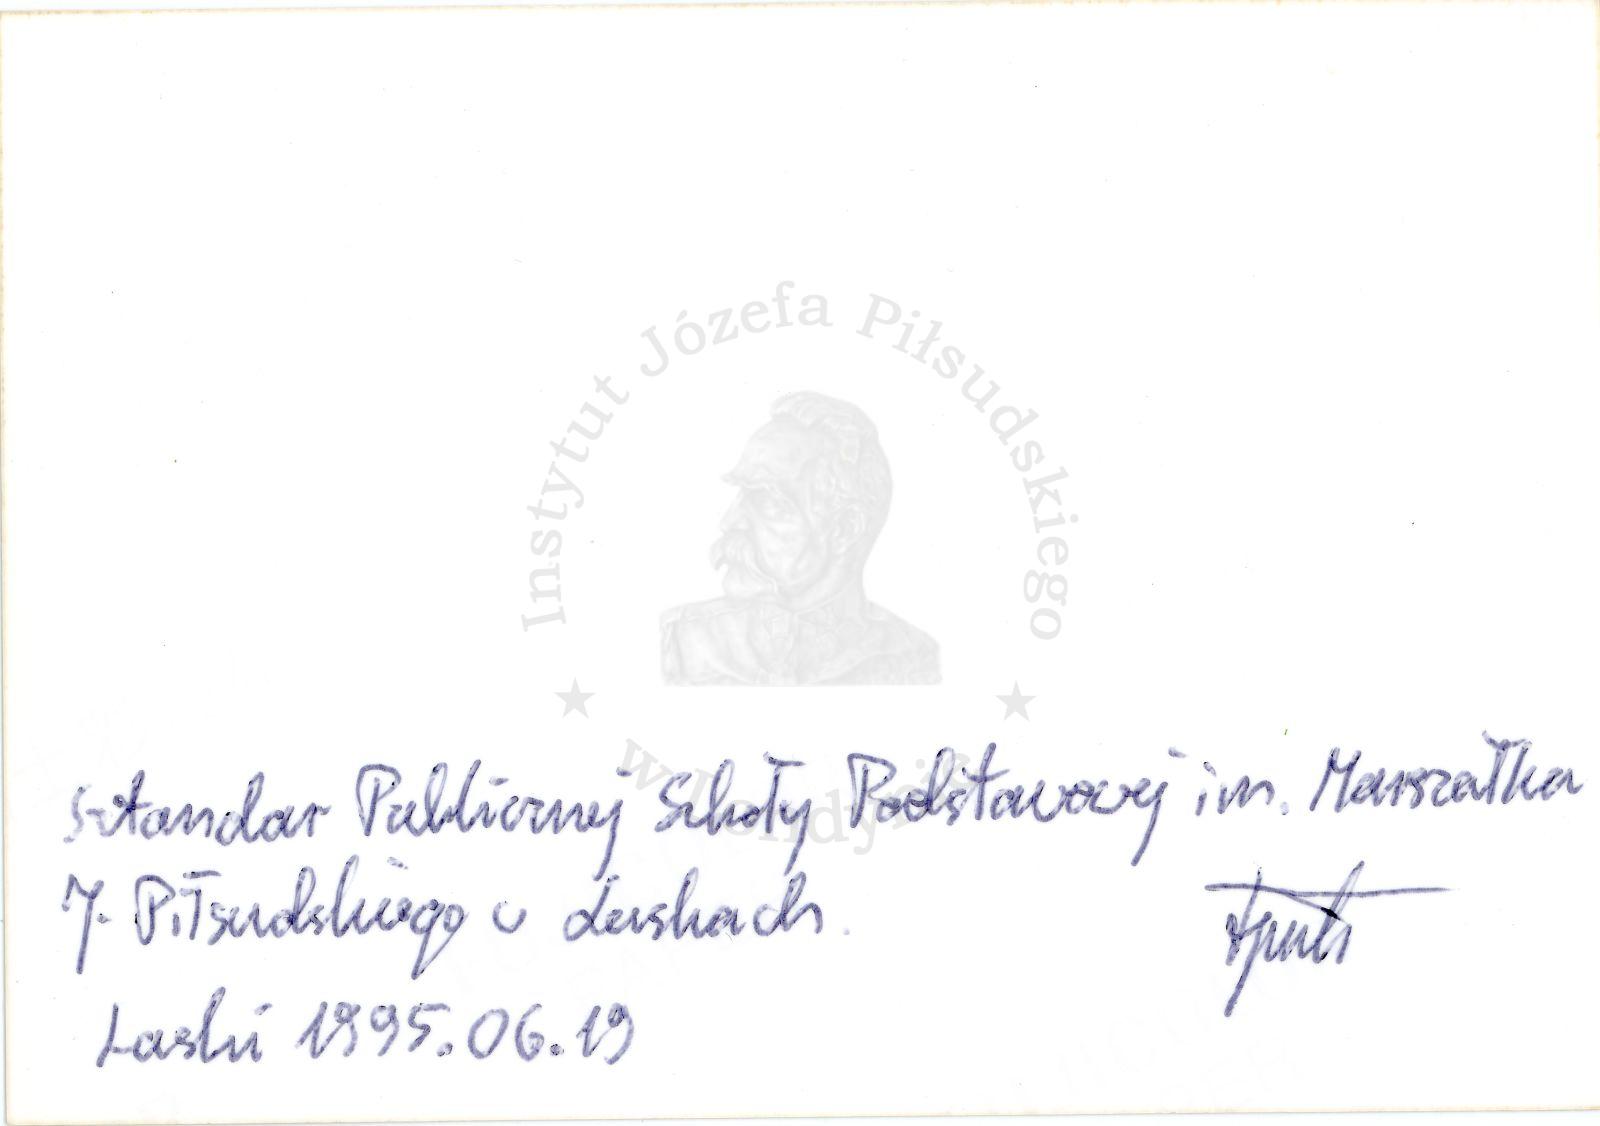 Instytut Józefa Piłsudskiego
w Londynie
Sztandar Publicznej Szkoły Podstawowej im. Marszałka
J. Piłsudskiego w Laskach.
Laski 1995.06.19